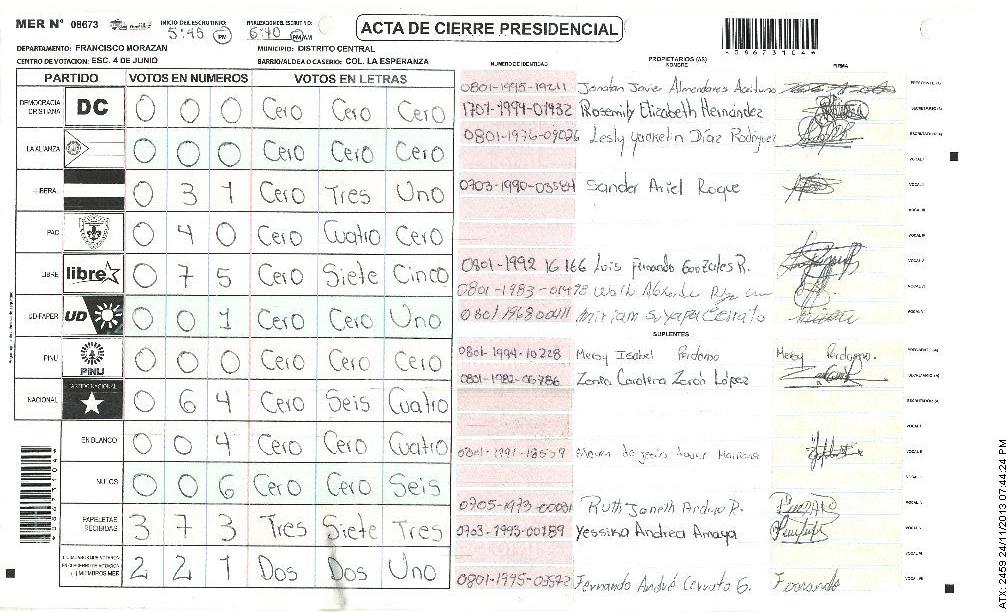 MER N° 08673 INICIO DEL ESCRUTINIO: 5:45 PM FINALIZACION DEL ESCRUTINIO: 6:40 PM AM
ACTA DE CIERRE PRESIDENCIAL
*08673104*
DEPARTAMENTO: FRANCISCO MORAZAN MUNICIPIO: DISTRITO CENTRAL
CENTRO DE VOTACION: ESC. 4 DE JUNIO BARRIO/ALDEA O CASERIO: COL. LA ESPERANZA
NUMERO DE IDENTIDAD PROPIETARIOS (AS) NOMBRE FIRMA
PARTIDO VOTOS EN NUMEROS VOTOS EN LETRAS
DEMOCRACIA CRISTIANA DC 0 0 0 Cero Cero Cero
LA ALIANZA 0 0 0 Cero Cero Cero
LIBERAL 0 3 1 Cero Tres Uno
PAC 0 4 0 Cero Cuatro Cero
LIBRE libre 0 7 5 Cero Siete Cinco
UD FAPER UD 0 0 1 Cero Cero Uno
PINU PINU 0 0 0 Cero Cero Cero
NACIONAL PARTIDO NACIONAL 0 6 4 Cero Seis Cuatro
EN BLANCO 0 0 4 Cero Cero Cuatro
NULOS 0 0 6 Cero Cero Seis
PAPELETAS RECIBIDAS 3 7 3 Tres Siete Tres
CIUDADANOS QUE VOTARON EN ESTE CENTRO DE VOTACION (+) MIEMBROS MER 2 2 1 Dos Dos Uno
0801-1995-19211 Jonatan Javier Almendares
1707-1994-01432 Rosemily Elizabeth Hernández
0801-1976-09026 Lesly Díaz Rodriguez
0703-1990-03584 Sander Ariel Roque
0801-1992 16 166 Luis Fernando Gonzales R.
0801-1983-01498
0801 1968 00411 Miriam Suyapa Cerrato
SUPLENTES
0801-1994-10228 Mercy Isabel Perdomo Mercy Perdomo.
0801-1982-06786 Carolina López
0801-1991-18559 de jesús
0705-1973-00001 Ruth Janeth R.
0703-1993-00189 Yessika Andrea Amaya
0801-1995-03572 Fernando André Cerrato G. Fernando
*08673104*
ATX: 2459 24/11/2013 07:44:24 PM